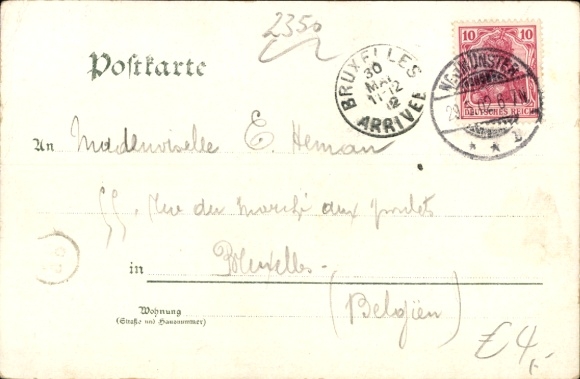 2350
Postkarte
BRUXELLES
30
MAI
11-12
ARRIVEE
10
DEUTSCHES REICH
NEUMÜNSTER
An Mademoiselle E. Heman
55, Rue du Marché aux poulets
in Bruxelles -
Wohnung
(Straße und Hausnummer)
(Belgien)
£4,-